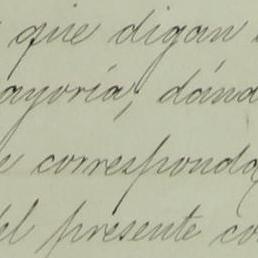 que digan
ayoría, dánd
e corresponda
el presente co